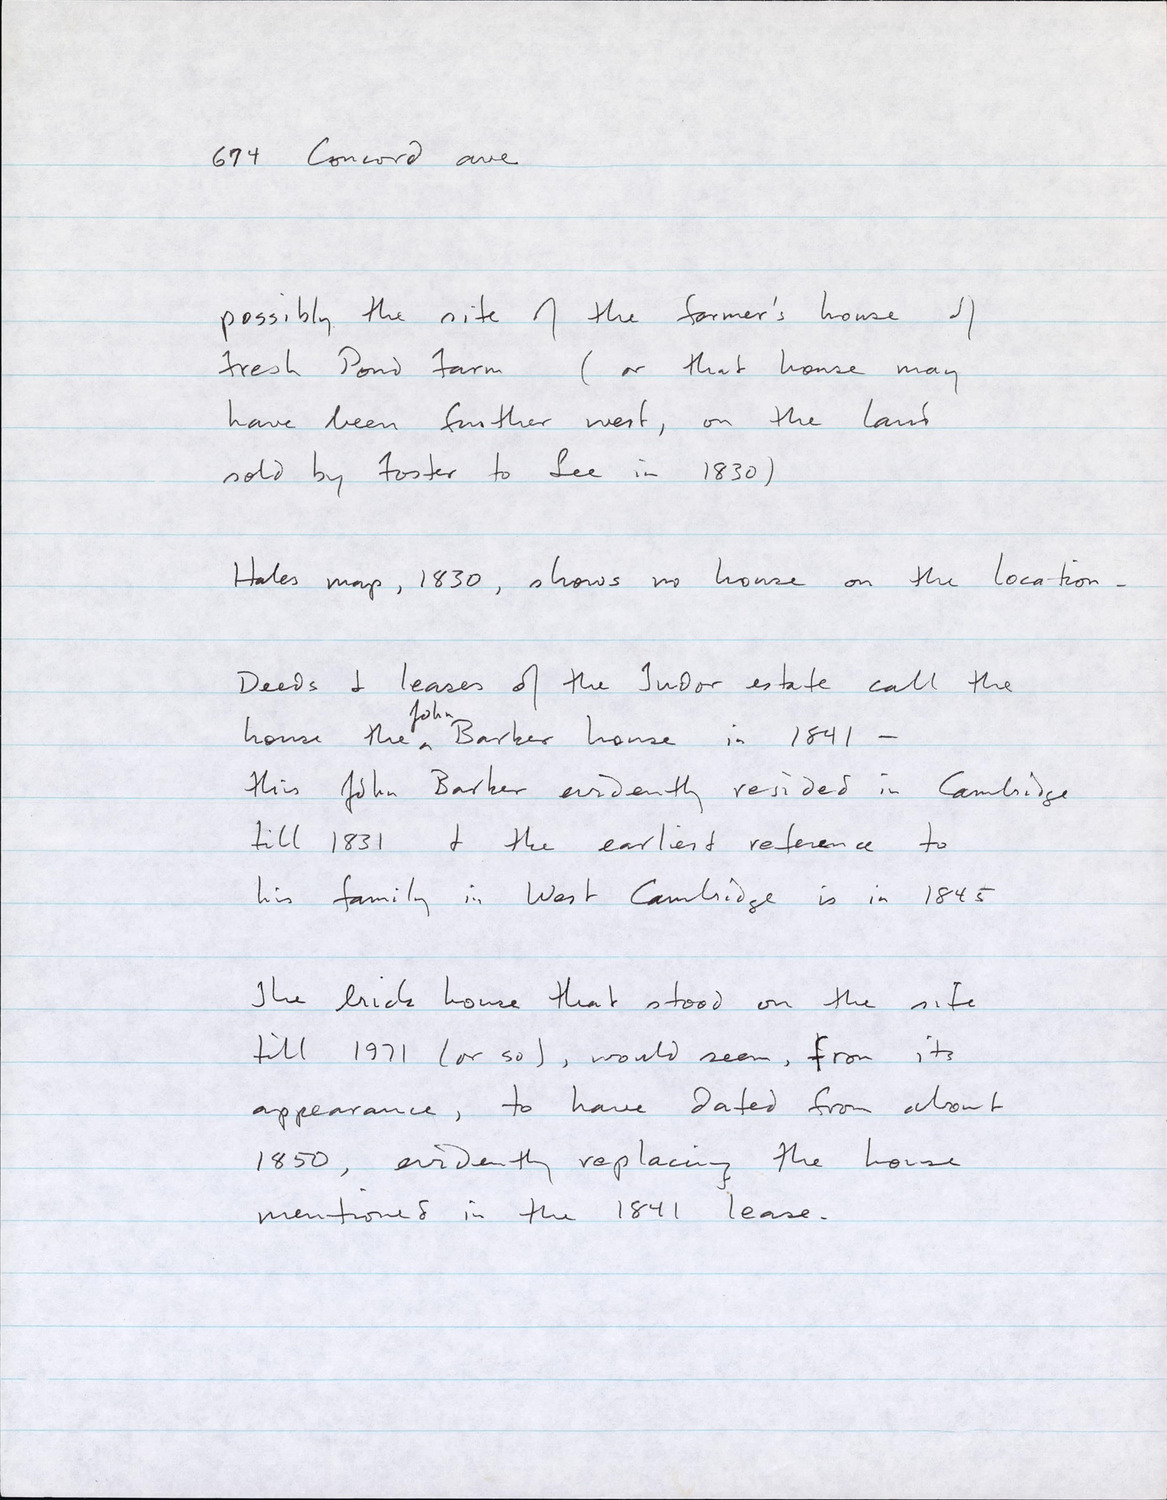 674 Concord ave
possibly the site of the farmer's house of
Fresh Pond Farm ( or that house may
have been further west, on the land
sold by Foster to Lee in 1830)
Hales map, 1830, shows no house on the location -
Deeds & leases of the Tudor estate call the
house the John Barker house in 1841 -
this John Barker evidently resided in Cambridge
till 1831 & the earliest reference to
his family in West Cambridge is in 1845
The brick house that stood on the site
till 1971 (or so), would seem, from its
appearance, to have dated from about
1850, evidently replacing the house
mentioned in the 1841 lease.